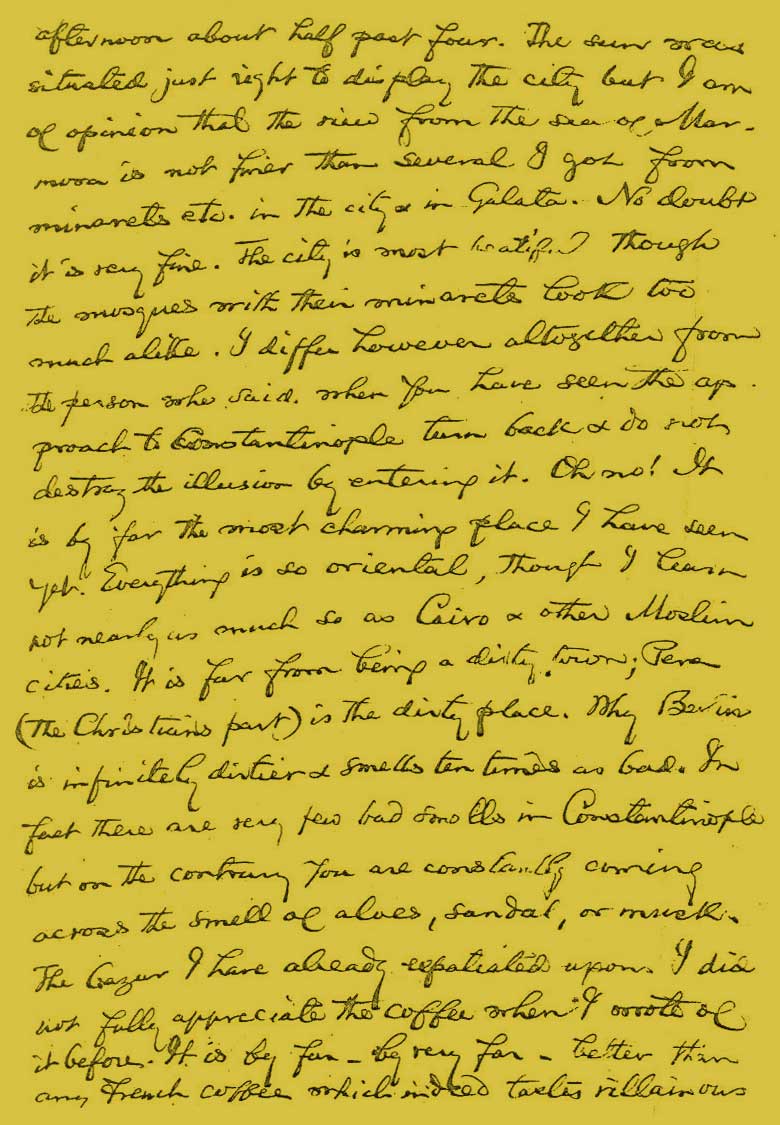 afternoon about half past four. The sun was
situated just right to display the city but I am
of opinion that the view from the sea of Mar-
mora is not finer than several I got from
minarets etc. in the city & in Galata. No doubt
it is very fine. The city is most beautiful though
the mosques with their minarets look too
much alike. I differ however altogether from
the person who said. when you have seen the ap-
proach to Constantinople turn back & do not
destroy the illusion by entering it. Oh no! It
is by far the most charming place I have seen
yet. Everything is so oriental, though I learn
not nearly as much so as Cairo & other Moslim
cities. It is far from being a dirty town; Pera
(the Christians part) is the dirty place. Why Berlin
is infinitely dirtier & smells ten times as bad. In
fact there are very few bad smells in Constantinople
but on the contrary you are constantly coming
across the smell of aloes, sandal, or musk.
The Bazar I have already expatiated upon. I did
not fully appreciate the coffee when I wrote of
it before. It is by far – by very far – better than
any French coffee which indeed tastes villainous